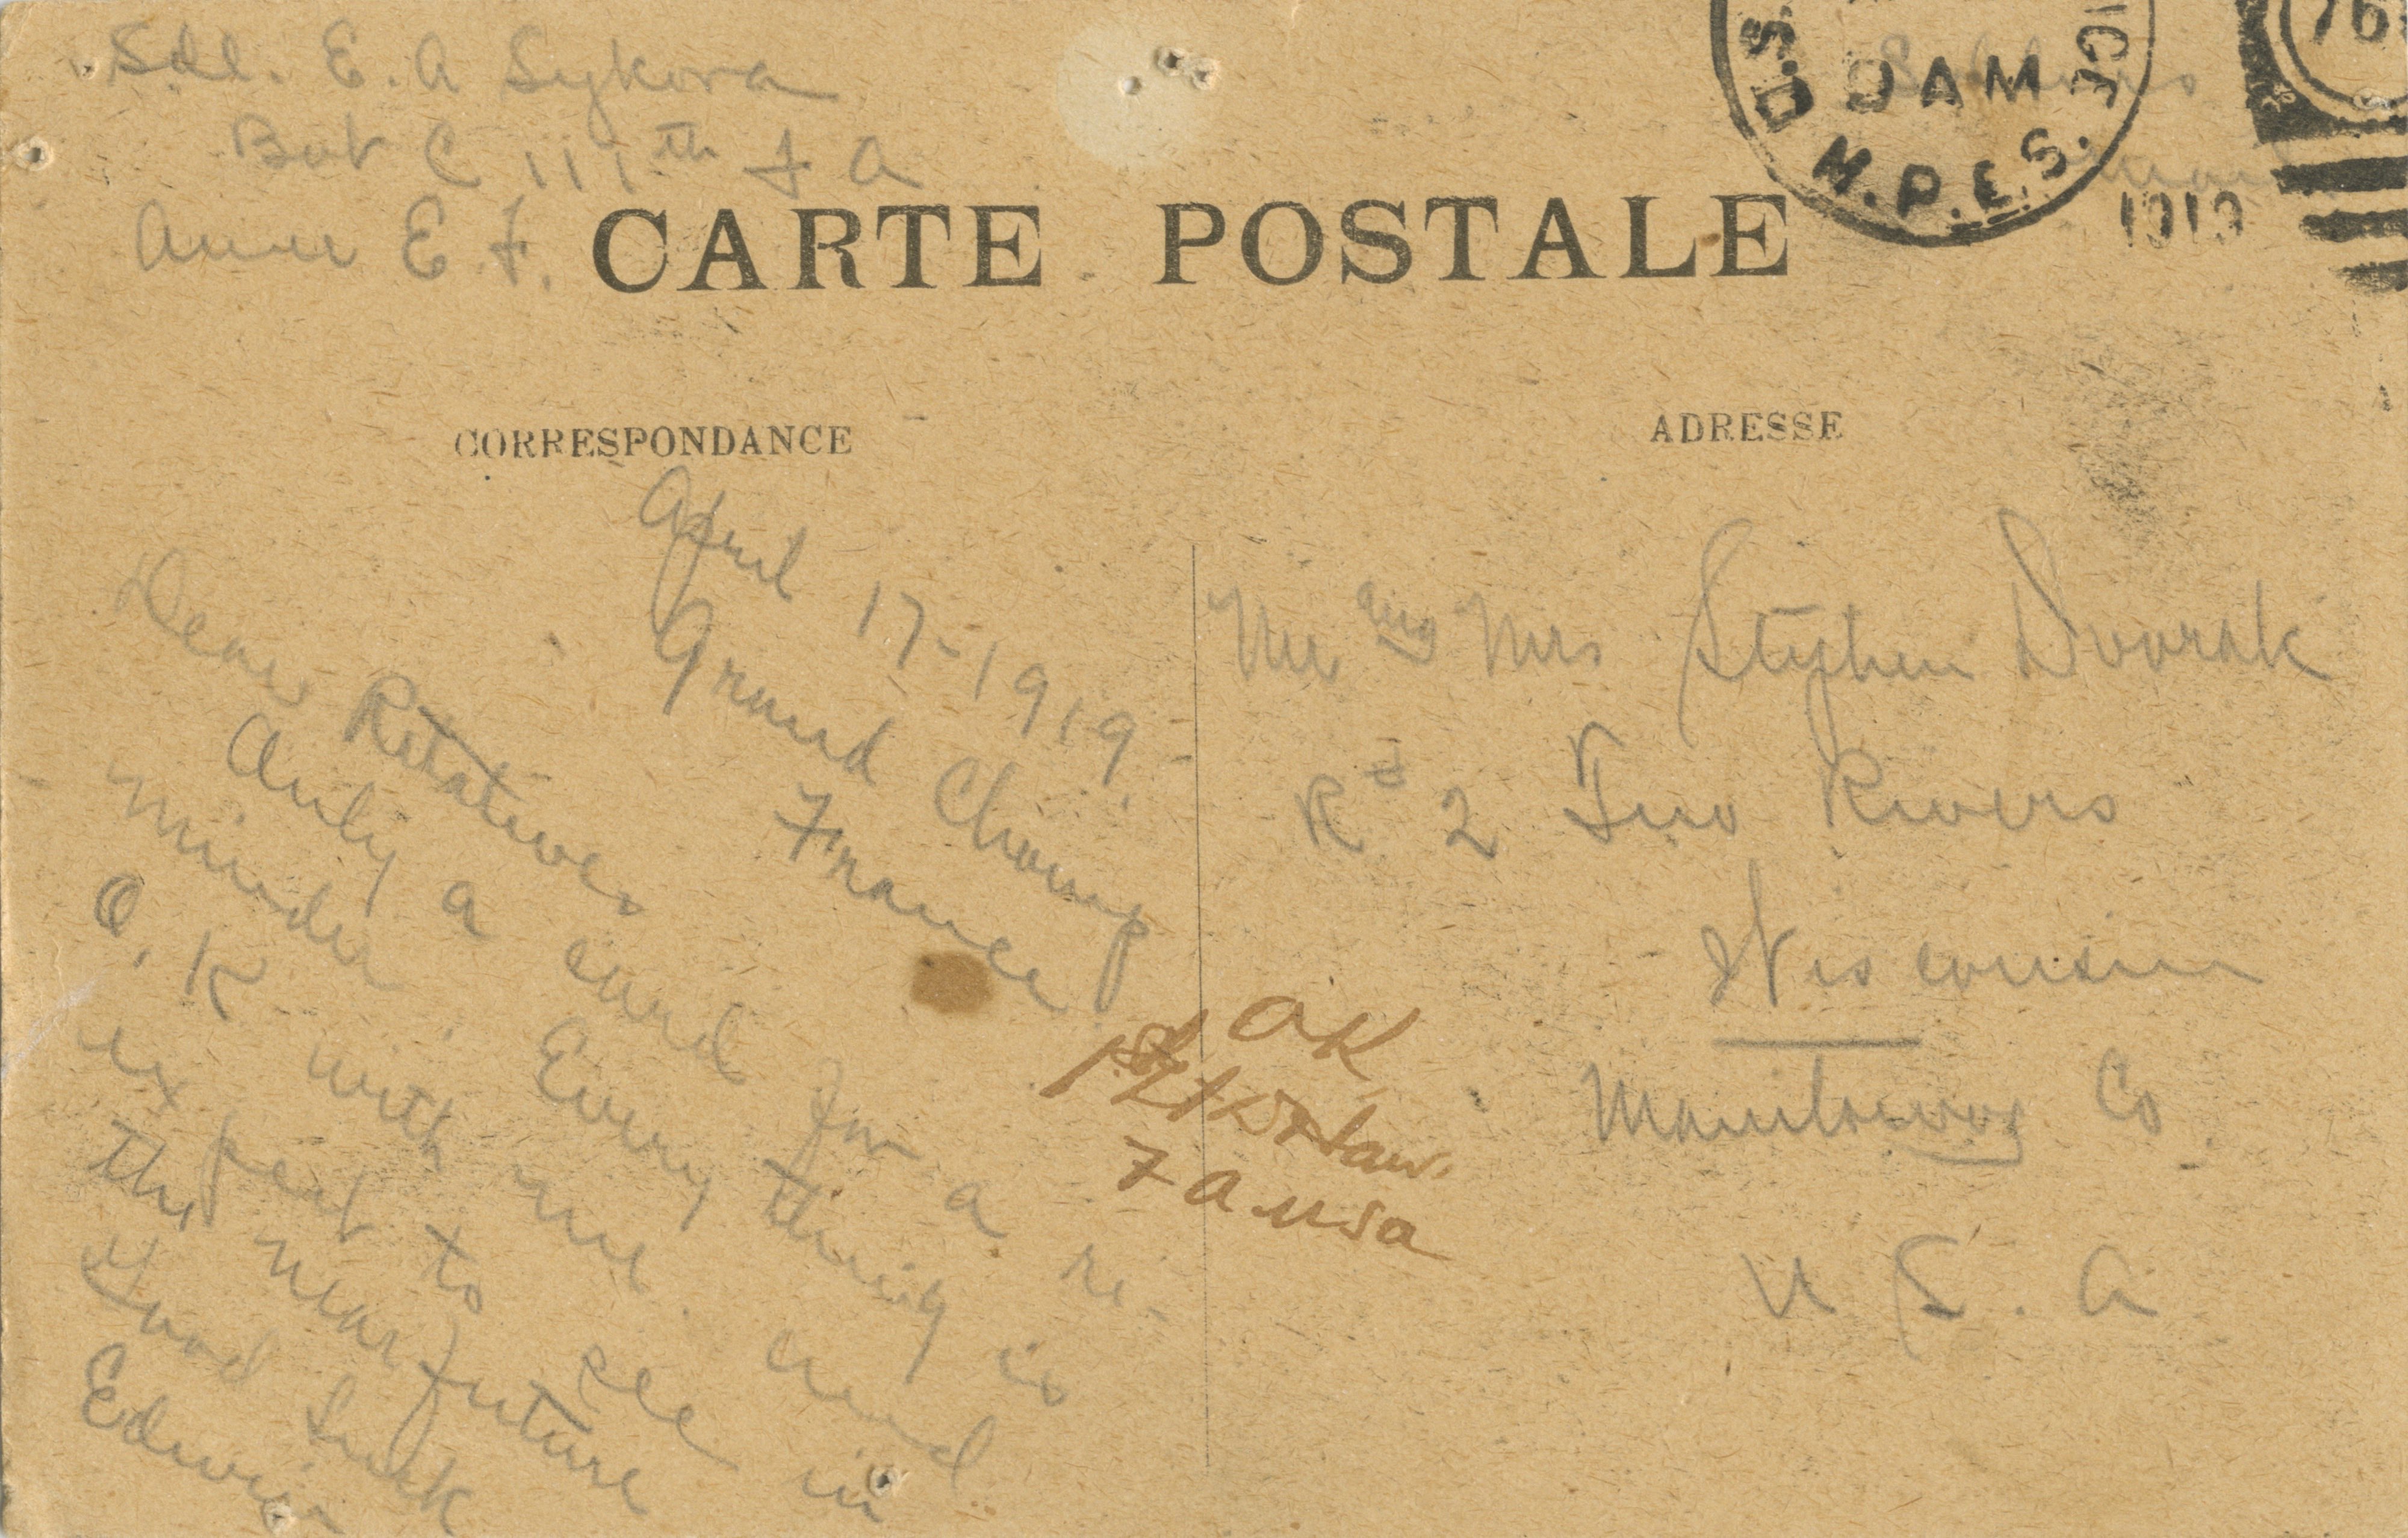 Sdl. E. A Sykora
Bat C 111th F A
Amer E. F.
U.S.
ICE
AM
M.P.E.S.
1919
76
Soldiers
mail
CARTE POSTALE
CORRESPONDANCE
ADRESSE
April 17-1919.
Grand Champ
France
Dear Relatives
Only a card for a re-
minder. Every thing is
O.K. with me. and
expect to see in
the near future
Good Luck
Edwin
Mr and Mrs Stephen Dvorak
Rd 2 Two Rivers
Wisconsin
Manitowoc Co.
U. S. A
OK
1st Lt
F A USA